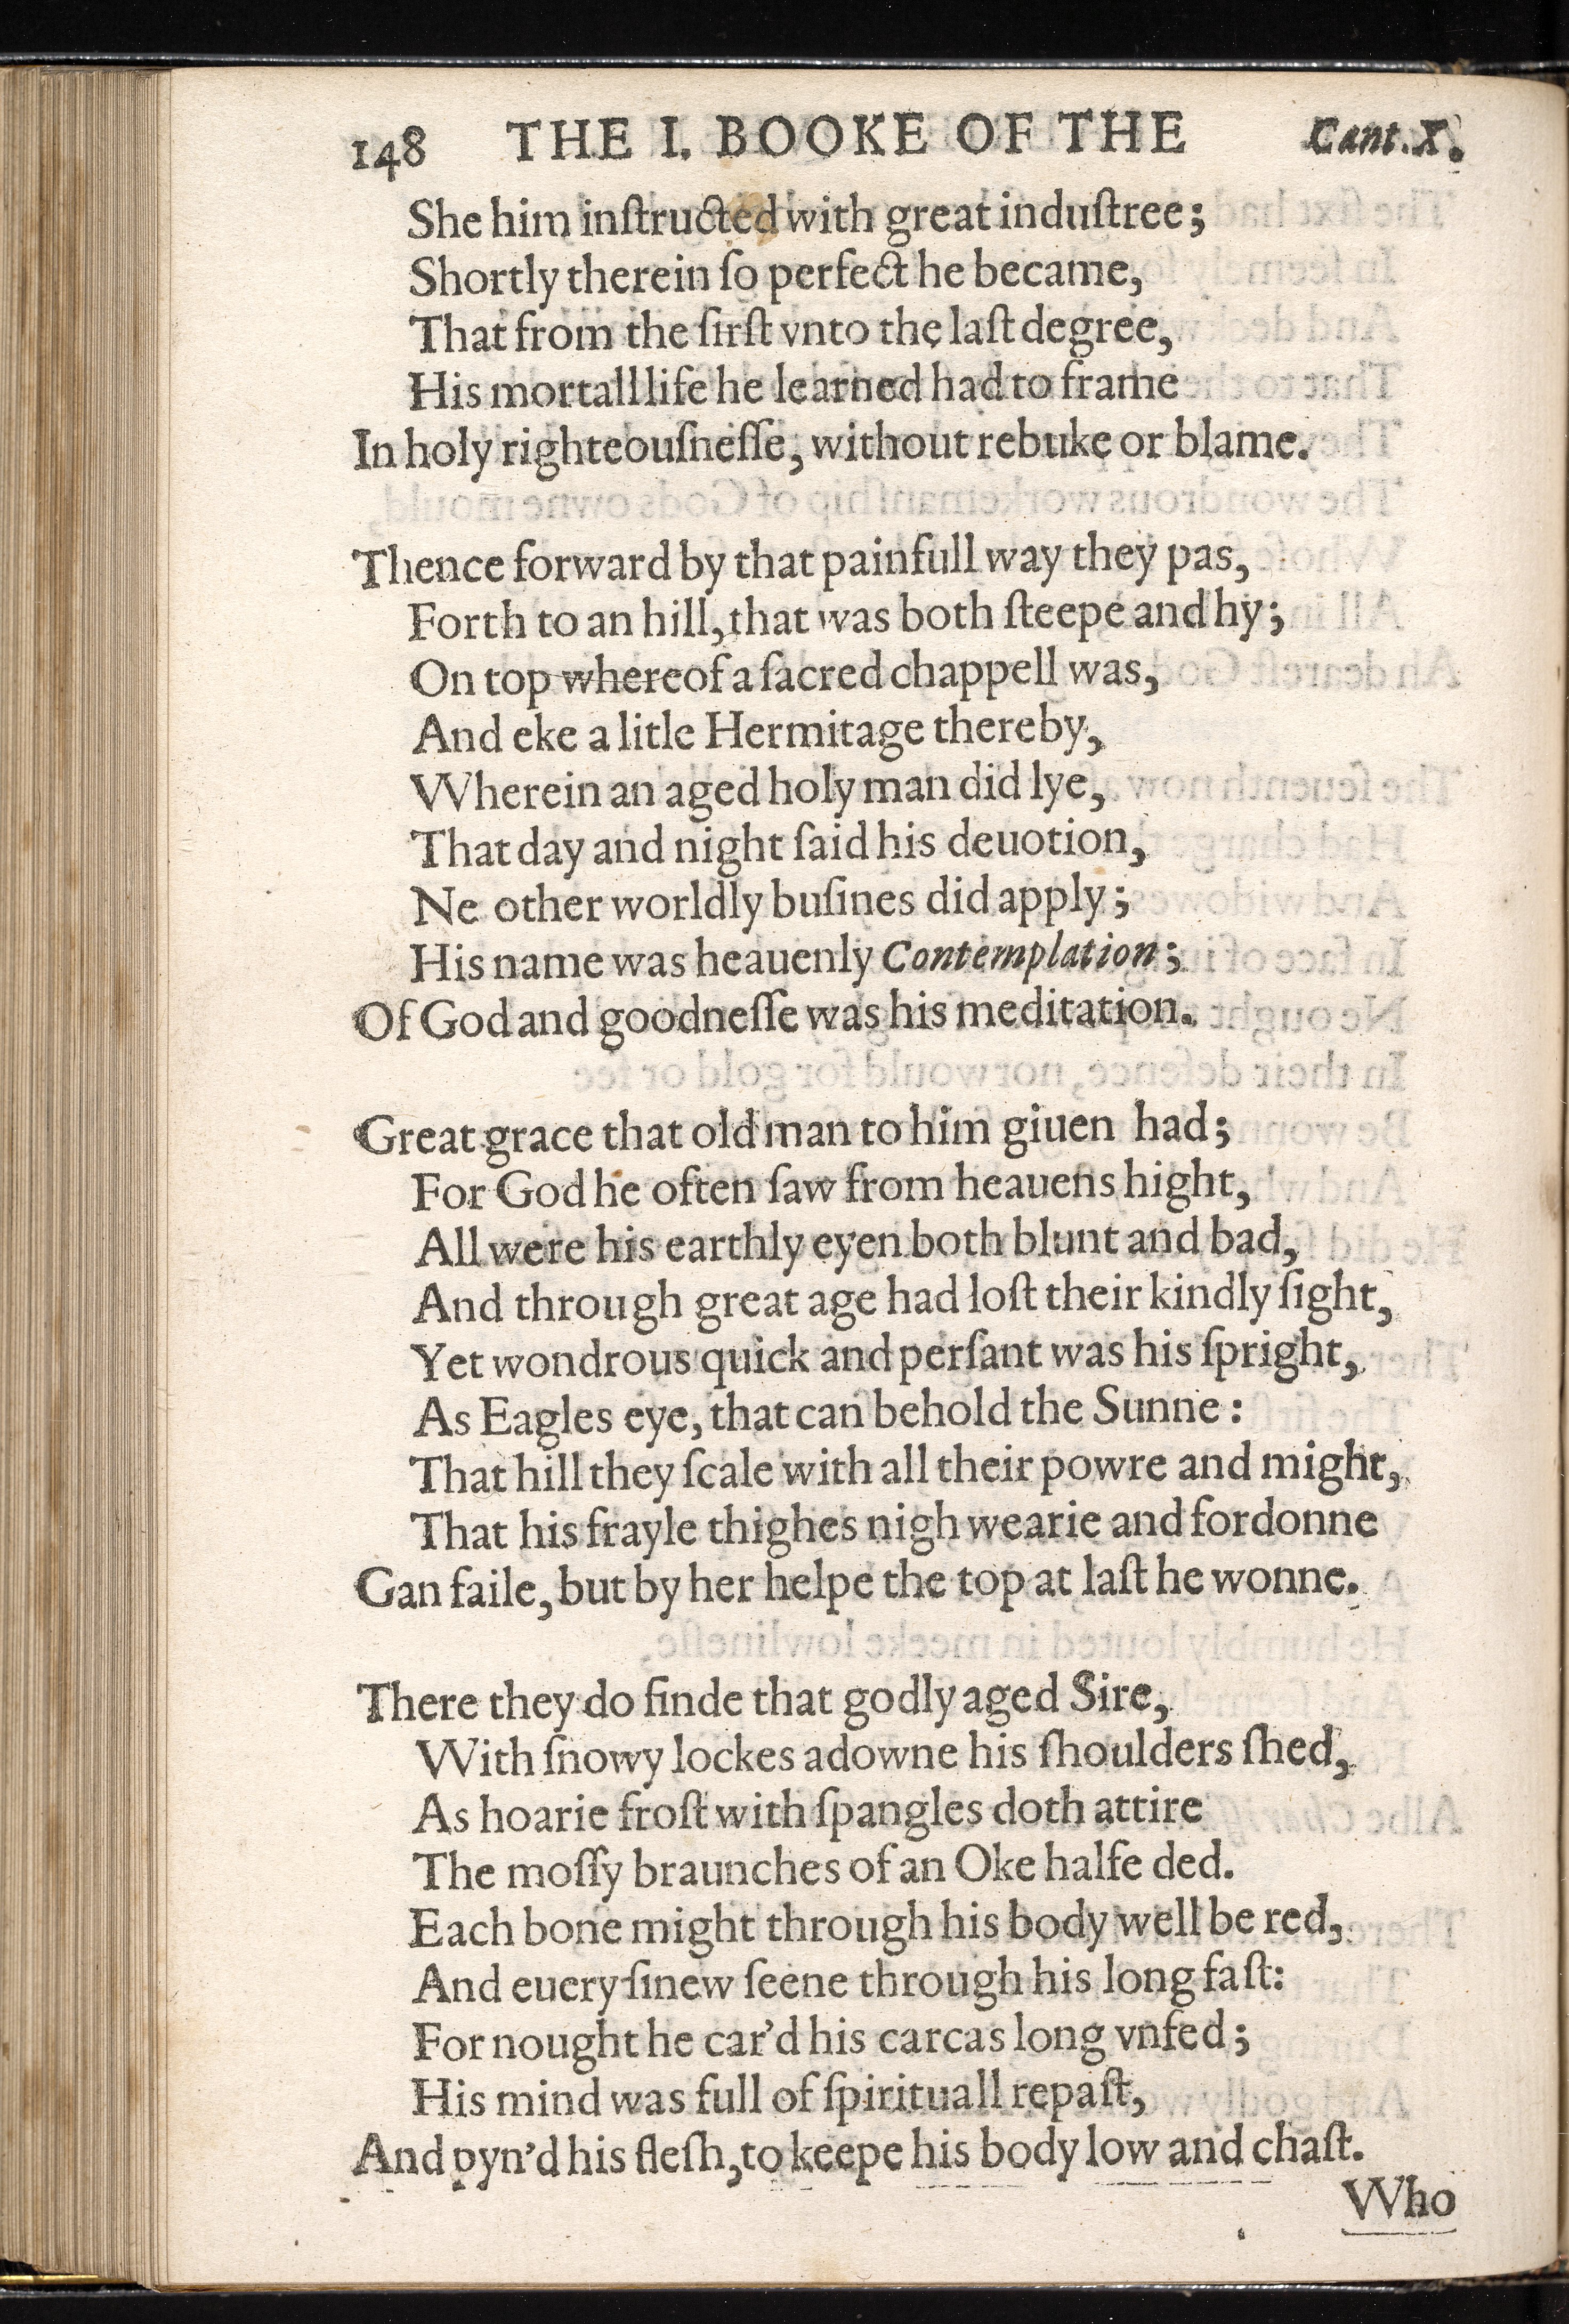 148 THE I. BOOKE OF THE Cant. X.
She him inſtructed with great induſtree;
Shortly therein ſo perfect he became,
That from the firſt vnto the laſt degree,
His mortall life he learned had to frame
In holy righteouſneſſe, without rebuke or blame.
Thence forward by that painfull way they pas,
Forth to an hill, that was both ſteepe and hy;
On top whereof a ſacred chappell was,
And eke a litle Hermitage thereby,
Wherein an aged holy man did lye,
That day and night ſaid his deuotion,
Ne other worldly buſines did apply;
His name was heauenly Contemplation;
Of God and goodneſſe was his meditation.
Great grace that old man to him giuen had;
For God he often ſaw from heauens hight,
All were his earthly eyen both blunt and bad,
And through great age had loſt their kindly ſight,
Yet wondrous quick and perſant was his ſpright,
As Eagles eye, that can behold the Sunne:
That hill they ſcale with all their powre and might,
That his frayle thighes nigh wearie and fordonne
Gan faile, but by her helpe the top at laſt he wonne.
There they do finde that godly aged Sire,
With ſnowy lockes adowne his ſhoulders ſhed,
As hoarie froſt with ſpangles doth attire
The moſſy braunches of an Oke halfe ded.
Each bone might through his body well be red,
And euery ſinew ſeene through his long faſt:
For nought he car'd his carcas long vnfed;
His mind was full of ſpirituall repaſt,
And pyn'd his fleſh, to keepe his body low and chaſt.
Who